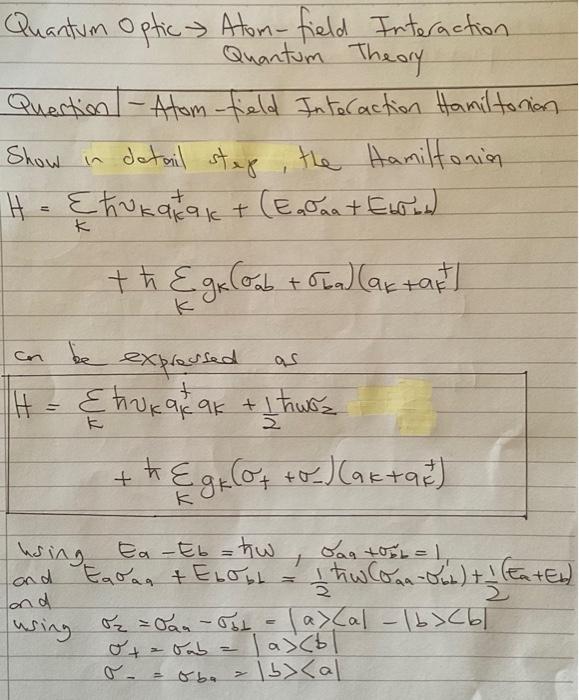 Quantum Optic → Atom-field Interaction
Quantum Theory
Question 1 - Atom-field Interaction Hamiltonian
Show in detail step, the Hamiltonian
H = Σ_k ħν_k a_k^† a_k + (E_a σ_aa + E_b σ_bb)
+ ħ Σ_k g_k (σ_ab + σ_ba)(a_k + a_k^†)
can be expressed as
H = Σ_k ħν_k a_k^† a_k + 1/2 ħωσ_z
+ ħ Σ_k g_k (σ_+ + σ_-)(a_k + a_k^†)
using E_a - E_b = ħω , σ_aa + σ_bb = 1,
and E_a σ_aa + E_b σ_bb = 1/2 ħω(σ_aa - σ_bb) + 1/2 (E_a + E_b)
and
using σ_z = σ_aa - σ_bb = |a><a| - |b><b|
σ_+ = σ_ab = |a><b|
σ_- = σ_ba = |b><a|